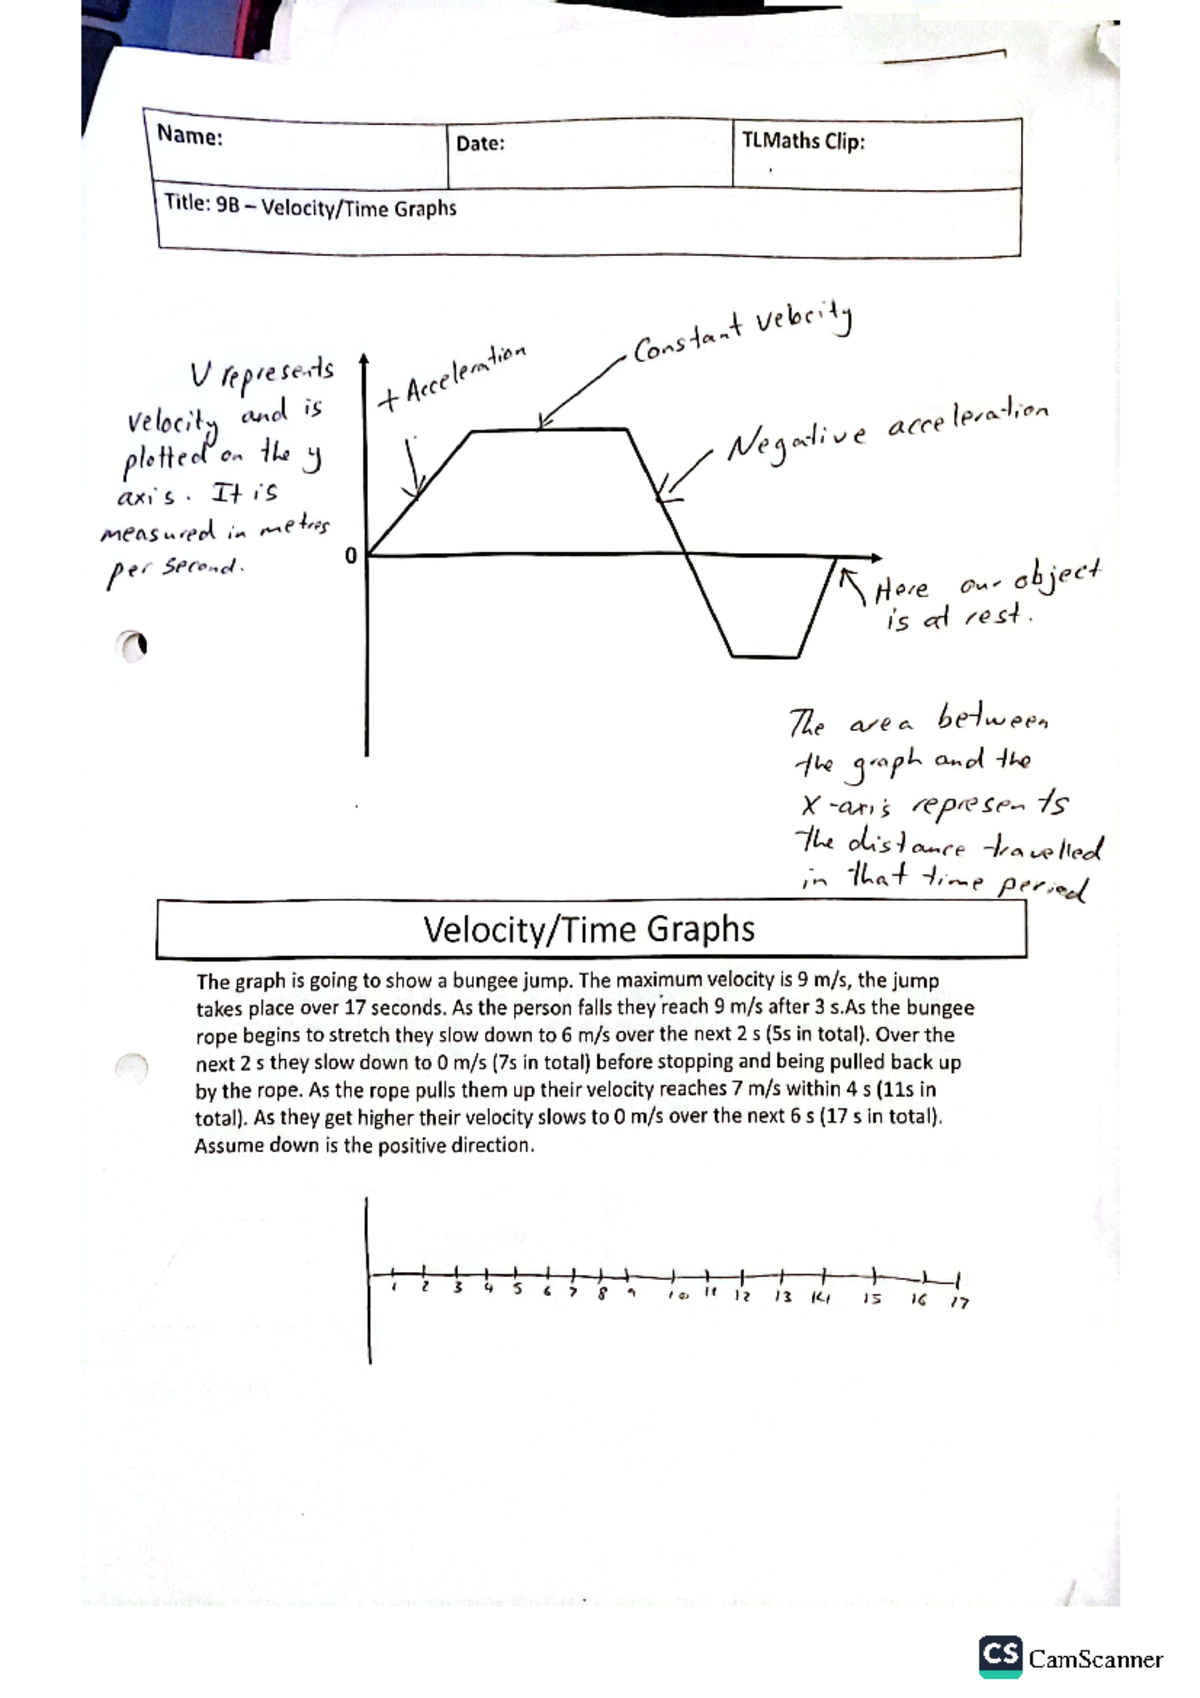 Name:
Date:
TLMaths Clip:
Title: 9B – Velocity/Time Graphs
V represents
velocity and is
plotted on the y
axis. It is
measured in metres
per second.
+ Acceleration
Constant velocity
Negative acceleration
0
Here our object
is at rest.
The area between
the graph and the
X-axis represents
the distance travelled
in that time period
Velocity/Time Graphs
The graph is going to show a bungee jump. The maximum velocity is 9 m/s, the jump
takes place over 17 seconds. As the person falls they reach 9 m/s after 3 s.As the bungee
rope begins to stretch they slow down to 6 m/s over the next 2 s (5s in total). Over the
next 2 s they slow down to 0 m/s (7s in total) before stopping and being pulled back up
by the rope. As the rope pulls them up their velocity reaches 7 m/s within 4 s (11s in
total). As they get higher their velocity slows to 0 m/s over the next 6 s (17 s in total).
Assume down is the positive direction.
1 2 3 4 5 6 7 8 9 10 11 12 13 14 15 16 17
CS CamScanner